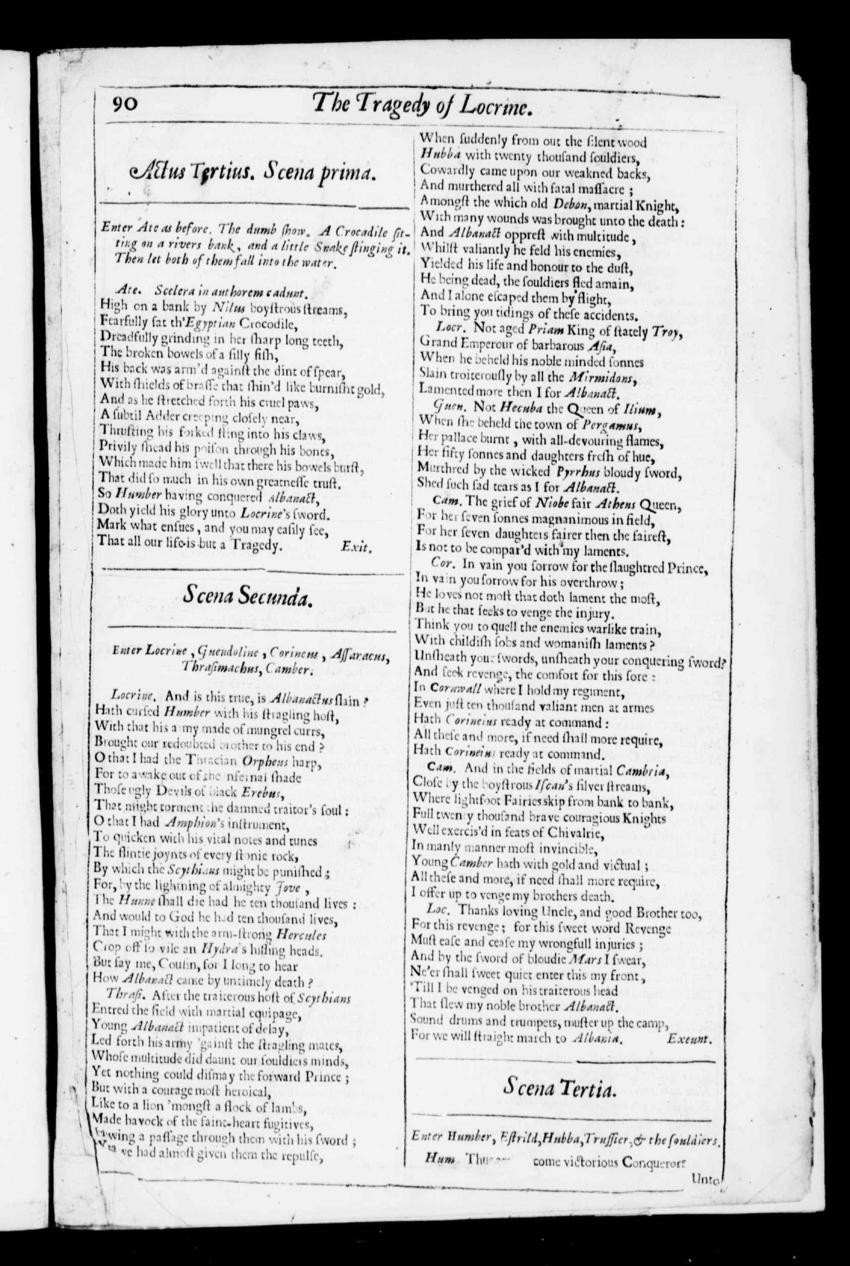 90
The Tragedy of Locrine.
Actus Tertius. Scena prima.
Enter Ate as before. The dumb ſhow. A Crocadile ſit-
ting on a rivers bank, and a little Snake ſtinging it.
Then let both of them fall into the water.
Ate. Scelera in authorem cadunt.
High on a bank by Nilus boyſtrous ſtreams,
Fearfully ſat th'Egyptian Crocodile,
Dreadfully grinding in her ſharp long teeth,
The broken bowels of a ſilly fiſh,
His back was arm'd againſt the dint of ſpear,
With ſhields of braſſe that ſhin'd like burniſht gold,
And as he ſtretched forth his cruel paws,
A ſubtil Adder creeping cloſely near,
Thruſting his forked ſting into his claws,
Privily ſhead his poiſon through his bones,
Which made him ſwell that there his bowels burſt,
That did ſo much in his own greatneſſe truſt.
So Humber having conquered Albanact,
Doth yield his glory unto Locrine's ſword.
Mark what enſues, and you may eaſily ſee,
That all our life is but a Tragedy. Exit.
Scena Secunda.
Enter Locrine, Guendoline, Corineus, Aſſaracus,
Thraſimachus, Camber.
Locrine. And is this true, is Albanactus ſlain?
Hath curſed Humber with his ſtragling hoſt,
With that his army made of mungrel currs,
Brought our redoubted brother to his end?
O that I had the Thracian Orpheus harp,
For to awake out of the infernal ſhade
Thoſe ugly Devils of black Erebus,
That might torment the damned traitor's ſoul:
O that I had Amphion's inſtrument,
To quicken with his vital notes and tunes
The flintie joynts of every ſtonie rock,
By which the Scythians might be puniſhed;
For, by the lightning of almighty Jove,
The Hunne ſhall die had he ten thouſand lives:
And would to God he had ten thouſand lives,
That I might with the arm-ſtrong Hercules
Crop off ſo vile an Hydra's hiſſing heads.
But ſay me, Couſin, for I long to hear
How Albanact came by untimely death?
Thraſi. After the traiterous hoſt of Scythians
Entred the field with martial equipage,
Young Albanact impatient of delay,
Led forth his army 'gainſt the ſtragling mates,
Whoſe multitude did daunt our ſouldiers minds,
Yet nothing could diſmay the forward Prince;
But with a courage moſt heroical,
Like to a lion 'mongſt a flock of lambs,
Made havock of the faint-heart fugitives,
Hewing a paſſage through them with his ſword;
Yea we had almoſt given them the repulſe,
When ſuddenly from out the ſilent wood
Hubba with twenty thouſand ſouldiers,
Cowardly came upon our weakned backs,
And murthered all with fatal maſſacre;
Amongſt the which old Debon, martial Knight,
With many wounds was brought unto the death:
And Albanact oppreſt with multitude,
Whilſt valiantly he feld his enemies,
Yielded his life and honour to the duſt,
He being dead, the ſouldiers fled amain,
And I alone eſcaped them by flight,
To bring you tidings of theſe accidents.
Locr. Not aged Priam King of ſtately Troy,
Grand Emperour of barbarous Aſia,
When he beheld his noble minded ſonnes
Slain troiterouſly by all the Mirmidons,
Lamented more then I for Albanact.
Guen. Not Hecuba the Queen of Ilium,
When ſhe beheld the town of Pergamus,
Her pallace burnt, with all-devouring flames,
Her fifty ſonnes and daughters freſh of hue,
Murthred by the wicked Pyrrhus bloudy ſword,
Shed ſuch ſad tears as I for Albanact.
Cam. The grief of Niobe fair Athens Queen,
For her ſeven ſonnes magnanimous in field,
For her ſeven daughters fairer then the faireſt,
Is not to be compar'd with my laments.
Cor. In vain you ſorrow for the ſlaughtred Prince,
In vain you ſorrow for his overthrow;
He loves not moſt that doth lament the moſt,
But he that ſeeks to venge the injury.
Think you to quell the enemies warlike train,
With childiſh ſobs and womaniſh laments?
Unſheath your ſwords, unſheath your conquering ſword?
And ſeek revenge, the comfort for this ſore:
In Cornwall where I hold my regiment,
Even juſt ten thouſand valiant men at armes
Hath Corineius ready at command:
All theſe and more, if need ſhall more require,
Hath Corineius ready at command.
Cam. And in the fields of martial Cambria,
Cloſe by the boyſtrous Iſcan's ſilver ſtreams,
Where lightfoot Fairies skip from bank to bank,
Full twenty thouſand brave couragious Knights
Well exercis'd in feats of Chivalrie,
In manly manner moſt invincible,
Young Camber hath with gold and victual;
All theſe and more, if need ſhall more require,
I offer up to venge my brothers death.
Loc. Thanks loving Uncle, and good Brother too,
For this revenge; for this ſweet word Revenge
Muſt eaſe and ceaſe my wrongfull injuries;
And by the ſword of bloudie Mars I ſwear,
Ne'er ſhall ſweet quiet enter this my front,
'Till I be venged on his traiterous head
That ſlew my noble brother Albanact.
Sound drums and trumpets, muſter up the camp,
For we will ſtraight march to Albania. Exeunt.
Scena Tertia.
Enter Humber, Eſtrild, Hubba, Truſſier, & the ſouldiers.
Hum. come victorious Conquerors
Unto